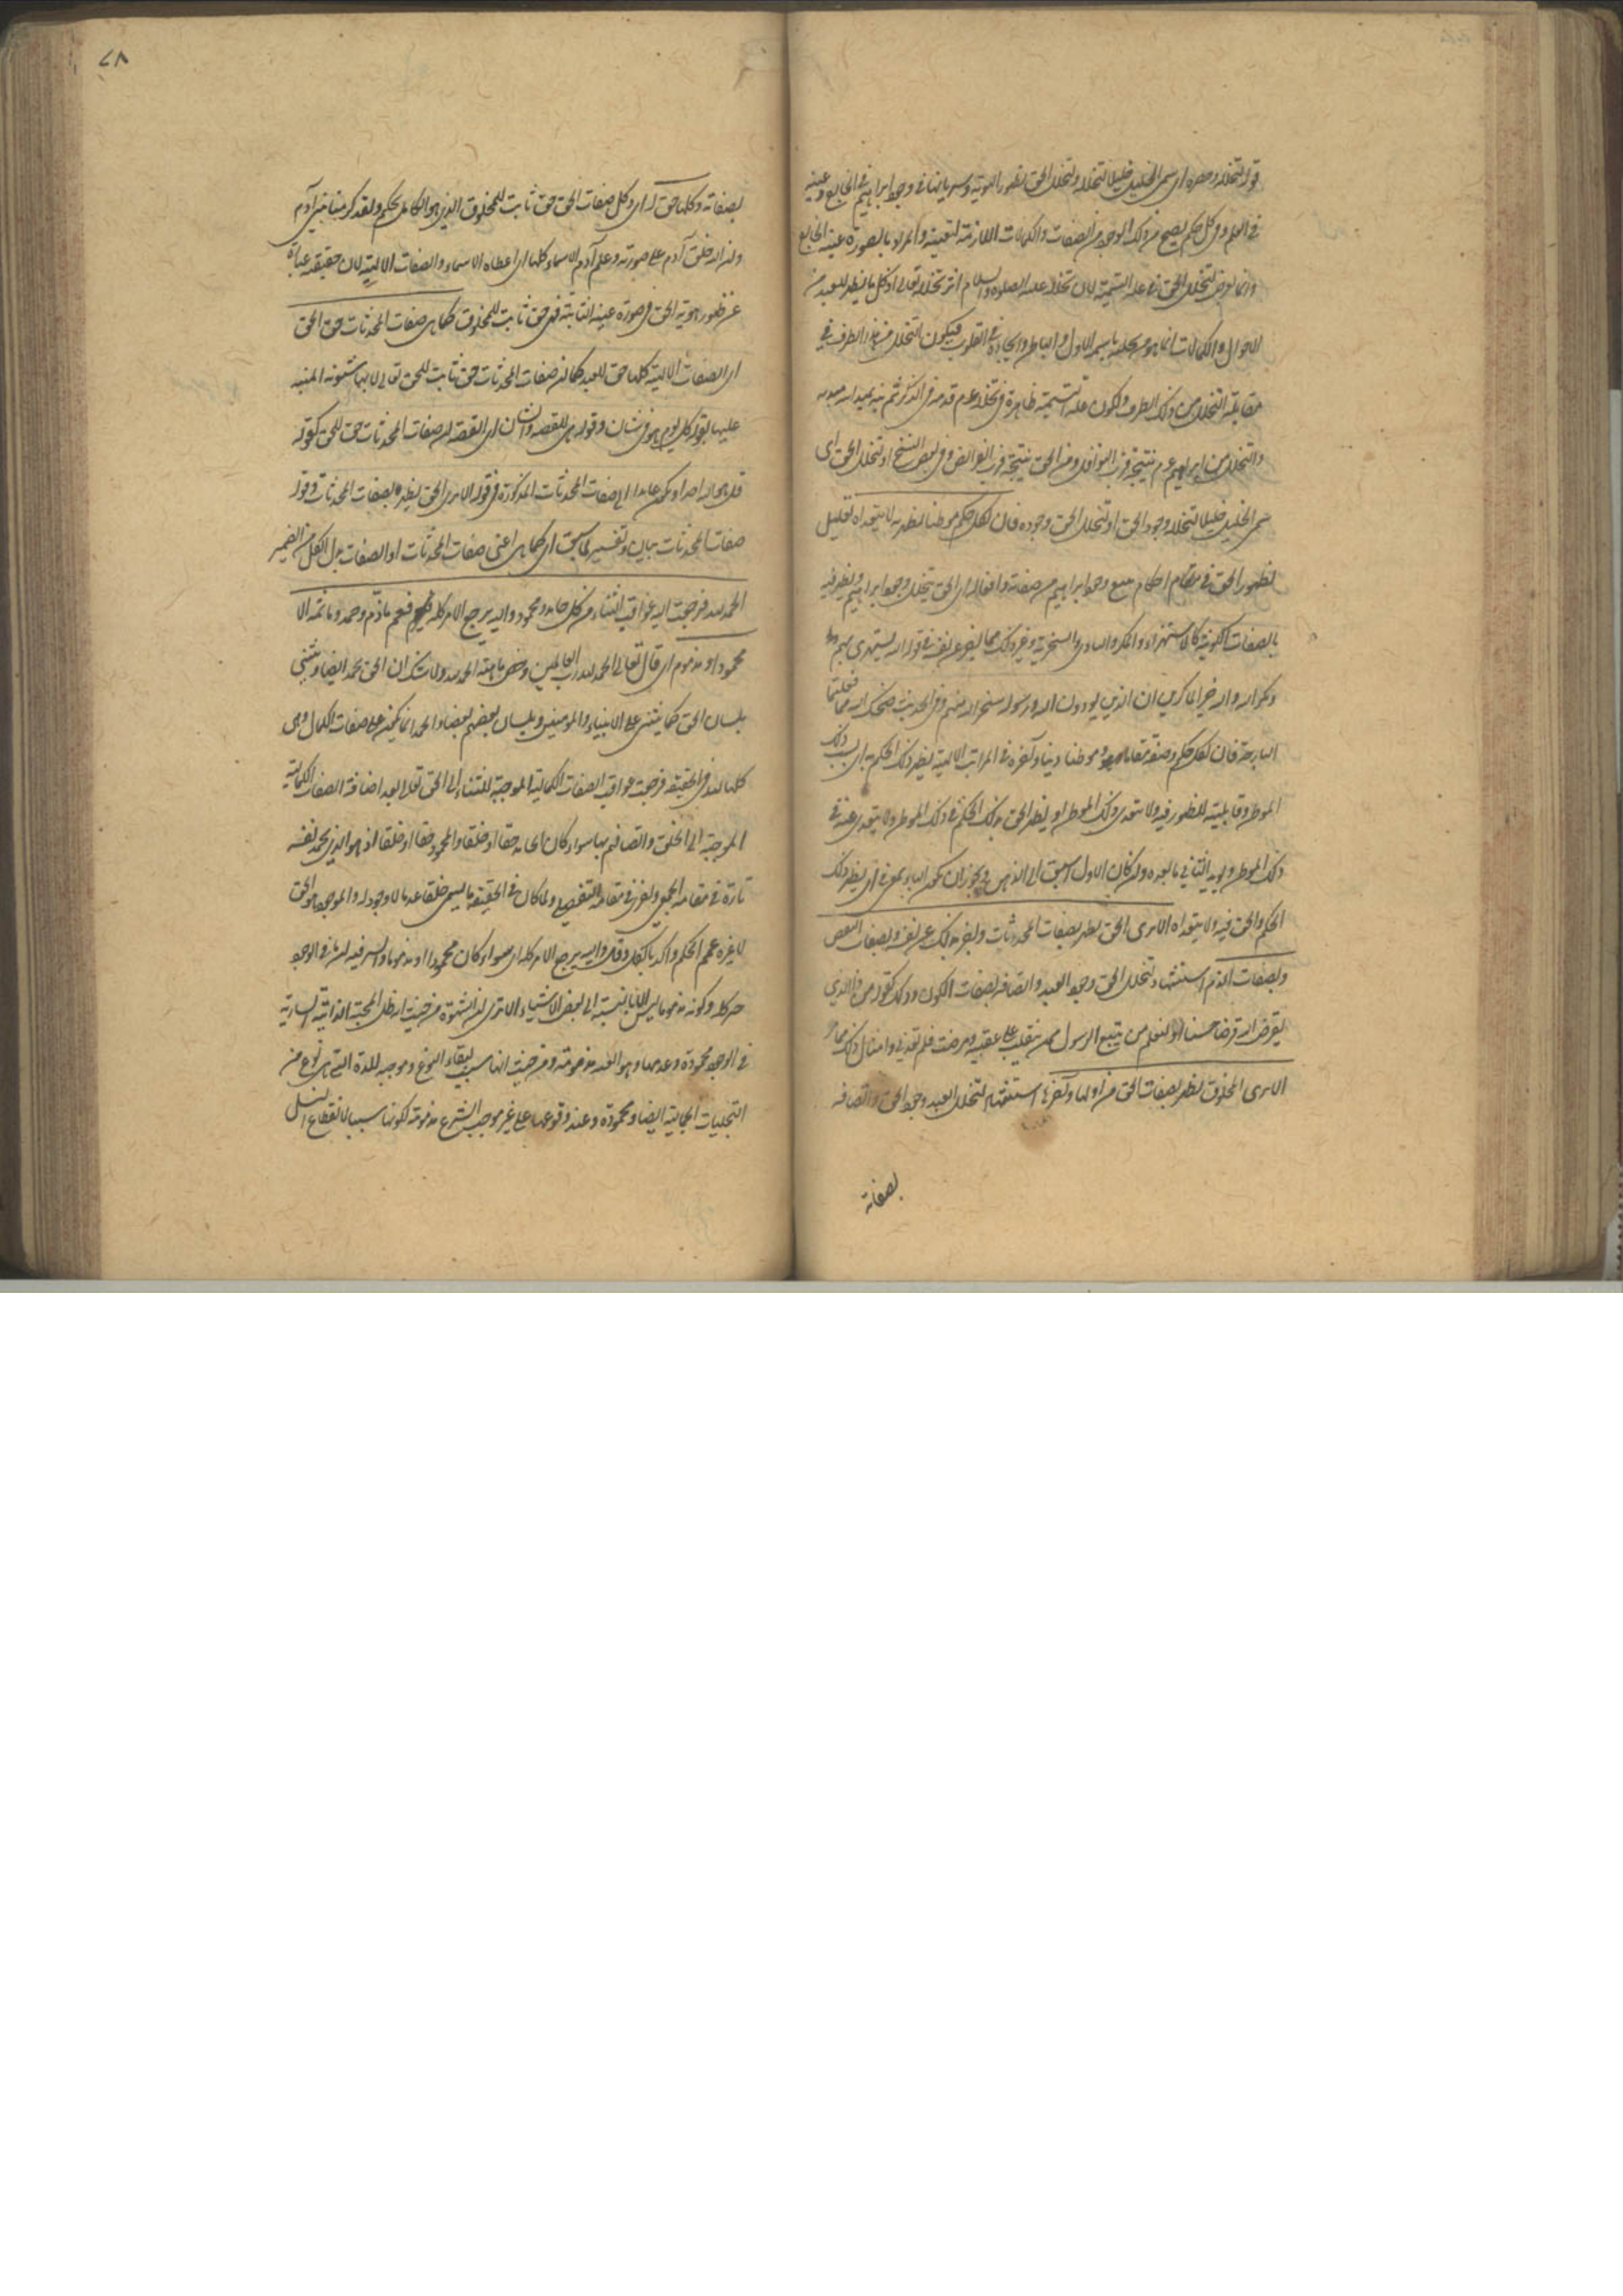 قوله لتخلله وحصره اى سمى الخليل خليلا لتخلله ولتخلل الحق بظهور الهوية وسريانها فى وجود ابراهيم فى الخارج وعينه
فى العلم وفى كل حكم يصح من ذلك الوجود من الصفات والكمالات اللازمة لتعينه والمراد بالصورة عينه الخارج
وانما تعرض لتخلل الحق فى علة التسمية لان تخلله عليه الصلوة والسلام اثر تخلله تعالى اذ كل ما يظهر للعبد من
الاحوال والكمالات انما هو من تجليه باسمه الاول والباطن وايجاده فى القلوب فيكون التخلل من هذا الطرف فى
مقابلة التخلل من ذلك الطرف ولكون علة التسمية ظاهرة فى تخلله عم قدمه فى الذكر ثم نبه بعيدانه مبدءه
والتخلل من ابراهيم عم نتيجة قرب النوافل ومن الحق نتيجة قرب الفرائض وفى بعض النسخ او لتخلل الحق اى
سمى الخليل خليلا لتخلله وجود الحق او لتخلل الحق وجوده فان لكل حكم موطنا يظهر به لا يتعداه تعليل
لظهور الحق فى مقام احكام جميع وجود ابراهيم من صفاته وافعاله اى الحق يتخلل وجود ابراهيم ويظهر فيه
بالصفات الكونية كالاستهزاء والمكر والتاذى والسخرية وغير ذلك مما اخبر عن نفسه فى قوله الله يستهزئ بهم ومكروا
ومكر الله والله خير الماكرين ان الذين يوذون الله ورسوله سخر الله منهم وفى الحديث ضحك الله مما فعلتما
البارحة فان لكل حكم وصفة مقاما وموطنا دنيا وآخرة فى المراتب الالهية يظهر ذلك الحكم به اى بسبب ذلك
الموطن وقابليته للظهور فيه ولا يتعدى ذلك الموطن او يظهر الحق بذلك الحكم فى ذلك الموطن ولا يتعدى عنه فى
ذلك الموطن ويؤيد الثانى ما بعده وان كان الاول اسبق الى الذهن ويجوز ان يكون الباء بمعنى فى اى يظهر ذلك
الحكم والحق فيه ولا يتعداه الا ترى الحق يظهر بصفات المحدثات واخبر بذلك عن نفسه وبصفات النقص
وبصفات الذم استشهاد لتخلل الحق وجود العبد واتصافه بصفات الكون وذلك كقوله من ذا الذى
يقرض الله قرضا حسنا او لنعلم من يتبع الرسول ممن ينقلب على عقبيه ومرضت فلم تعدنى وامثال ذلك مما
الا ترى المخلوق يظهر بصفات الحق من اولها وآخرها استشهاد لتخلل العبد وجود الحق واتصافه
بصفاته
٧٨
بصفاته وكلها حق له اى وكل صفات الحق حق ثابت للمخلوق الذى هو الكامل بحكم ولقد كرمنا بنى آدم
وان الله خلق آدم على صورته وعلم آدم الاسماء كلها اى اعطاه الاسماء والصفات الالهية لان حقيقته عبارة
عن ظهور هوية الحق فى صورة عينه الثابتة فهى حق ثابت للمخلوق كما هى صفات المحدثات حق للحق
اى الصفات الالهية كلها حق للعبد كما ان صفات المحدثات حق ثابت للحق تعالى لانها شئونه المنبه
عليها بقوله كل يوم هو فى شان وقوله هى للقصة والشان اى القصة ان صفات المحدثات حق للحق كقوله
قل هو الله احد او يكون عائدا الى صفات المحدثات المذكورة فى قوله الا ترى الحق يظهر بصفات المحدثات وقوله
صفات المحدثات بيان وتفسير لما سبق اى كما هى اعنى صفات المحدثات او الصفات بدل الكل من الضمير
الحمد لله فرجعت اليه عواقب الثناء من كل حامد ومحمود واليه يرجع الامر كله فعم ما ذم وحمد وما ثمه الا
محمود او مذموم اى قال تعالى الحمد لله رب العالمين وخص ماهية الحمد لله ولا شك ان الحق يحمد ايضا ويثنى
بلسان الحق كما يثنى على الانبياء والمومنين وبلسان بعضهم بعضا والحمد انما يكون على صفات الكمال وهى
كلها لله فى الحقيقة فرجعت عواقب الصفات الكمالية الموجبة للثناء الى الحق تعالى بعد اضافة الصفات الكمالية
الموجبة الى الخلق واتصافهم بها سواء كان الحامد حقا او خلقا والمحمود حقا او خلقا اذ هو الذى يحمد نفسه
تارة فى مقامه الجمعى واخرى فى مقامه التفصيلى ولما كان فى الحقيقة ما يسمى خلقا عدما لا وجود له والموجود هو الحق
لا غيره عمم الحكم واكد بالكل وقال واليه يرجع الامر كله اى سواء كان محمودا او مذموما والسر فيه ان ما فى الوجود
خير كله وكونه مذموما ليس الا بالنسبة الى بعض الاشياء الا ترى ان الشهوة من حيث انها ظل المحبة الذاتية السارية
فى الوجود محمودة وعدمها وهو العنة مذمومة ومن حيث انها سبب لبقاء النوع وموجبه للذة التى هى نوع من
التجليات الجمالية ايضا محمودة وعند وقوعها على غير موجب الشرع مذمومة لكونها سببا لانقطاع النسل